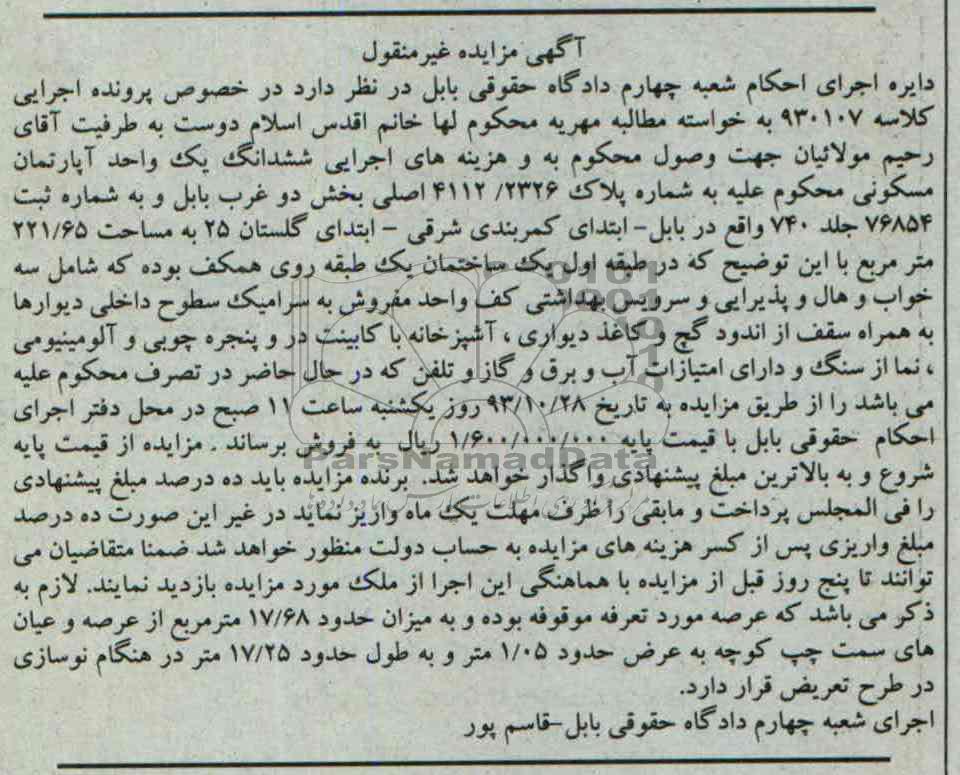 آگهی مزایده غیرمنقول
دایره اجرای احکام شعبه چهارم دادگاه حقوقی بابل در نظر دارد در خصوص پرونده اجرایی
کلاسه ۹۳۰۱۰۷ به خواسته مطالبه مهریه محکوم لها خانم اقدس اسلام دوست به طرفیت آقای
رحیم مولائیان جهت وصول محکوم به و هزینه های اجرایی ششدانگ یک واحد آپارتمان
مسکونی محکوم علیه به شماره پلاک ۲۳۲۶/ ۴۱۱۲ اصلی بخش دو غرب بابل و به شماره ثبت
۷۶۸۵۴ جلد ۷۴۰ واقع در بابل- ابتدای کمربندی شرقی - ابتدای گلستان ۲۵ به مساحت ۲۲۱/۶۵
متر مربع با این توضیح که در طبقه اول یک ساختمان یک طبقه روی همکف بوده که شامل سه
خواب و هال و پذیرایی و سرویس بهداشتی کف واحد مفروش به سرامیک سطوح داخلی دیوارها
به همراه سقف از اندود گچ و کاغذ دیواری ، آشپزخانه با کابینت در و پنجره چوبی و آلومینیومی
، نما از سنگ و دارای امتیازات آب و برق و گاز او تلفن که در حال حاضر در تصرف محکوم علیه
می باشد را از طریق مزایده به تاریخ ۹۳/۱۰/۲۸ روز یکشنبه ساعت ۱۱ صبح در محل دفتر اجرای
احکام حقوقی بابل با قیمت پایه ۱/۶۰۰/۰۰۰/۰۰۰ ریال به فروش برساند . مزایده از قیمت پایه
ParsNamadData
شروع و به بالاترین مبلغ پیشنهادی واگذار خواهد شد. برنده مزایده باید ده درصد مبلغ پیشنهادی
را فی المجلس پرداخت و مابقی را ظرف مهلت یک ماه واریز نماید در غیر این صورت ده درصد
مبلغ واریزی پس از کسر هزینه های مزایده به حساب دولت منظور خواهد شد ضمنا متقاضیان می
توانند تا پنج روز قبل از مزایده با هماهنگی این اجرا از ملک مورد مزایده بازدید نمایند. لازم به
ذکر می باشد که عرصه مورد تعرفه موقوفه بوده و به میزان حدود ۱۷/۶۸ مترمربع از عرصه و عیان
های سمت چپ کوچه به عرض حدود ۱/۰۵ متر و به طول حدود ۱۷/۲۵ متر در هنگام نوسازی
در طرح تعریض قرار دارد.
اجرای شعبه چهارم دادگاه حقوقی بابل-قاسم پور